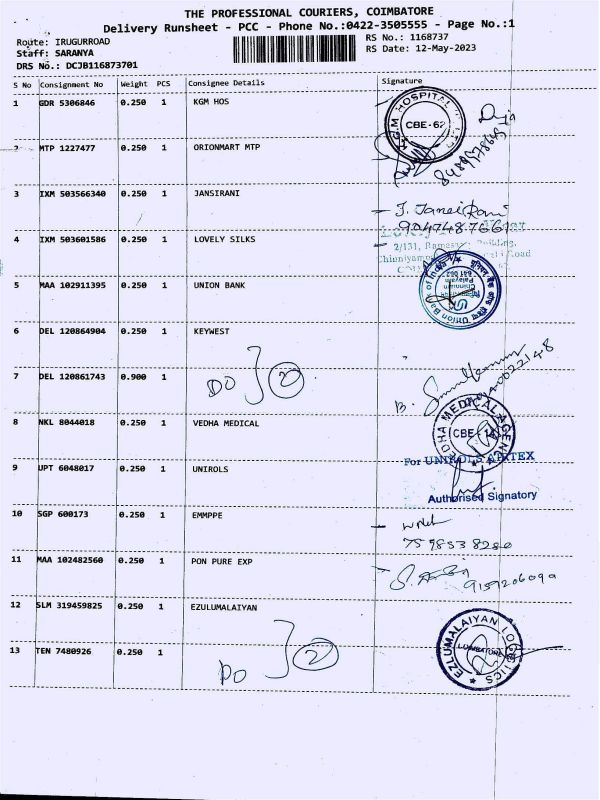 THE PROFESSIONAL COURIERS, COIMBATORE
Delivery Runsheet - PCC - Phone No.:0422-3505555 - Page No.:1
Route: IRUGURROAD
RS No.: 1168737
Staff: SARANYA
RS Date: 12-May-2023
DRS No.: DCJB116873701
S No Consignment No Weight PCS Consignee Details Signature
1 GDR 5306846 0.250 1 KGM HOS
K.G.M HOSPITAL
CBE-62
2 MTP 1227477 0.250 1 ORIONMART MTP
3 IXM 503566340 0.250 1 JANSIRANI
9047487661
4 IXM 503601586 0.250 1 LOVELY SILKS
2/131,
5 MAA 102911395 0.250 1 UNION BANK
Union Bank of India
6 DEL 120864904 0.250 1 KEYWEST
7 DEL 120861743 0.900 1
DO 2
B.
8 NKL 8044018 0.250 1 VEDHA MEDICAL
VEDHA MEDICAL AGEN
CBE - 14
9 UPT 6048017 0.250 1 UNIROLS
For UNIROLS AIRTEX
Authorised Signatory
10 SGP 600173 0.250 1 EMMPPE
7598538280
11 MAA 102482560 0.250 1 PON PURE EXP
9159206090
12 SLM 319459825 0.250 1 EZULUMALAIYAN
EZLUMALAIYAN LOGISTICS
COIMBATORE
13 TEN 7480926 0.250 1
DO 2